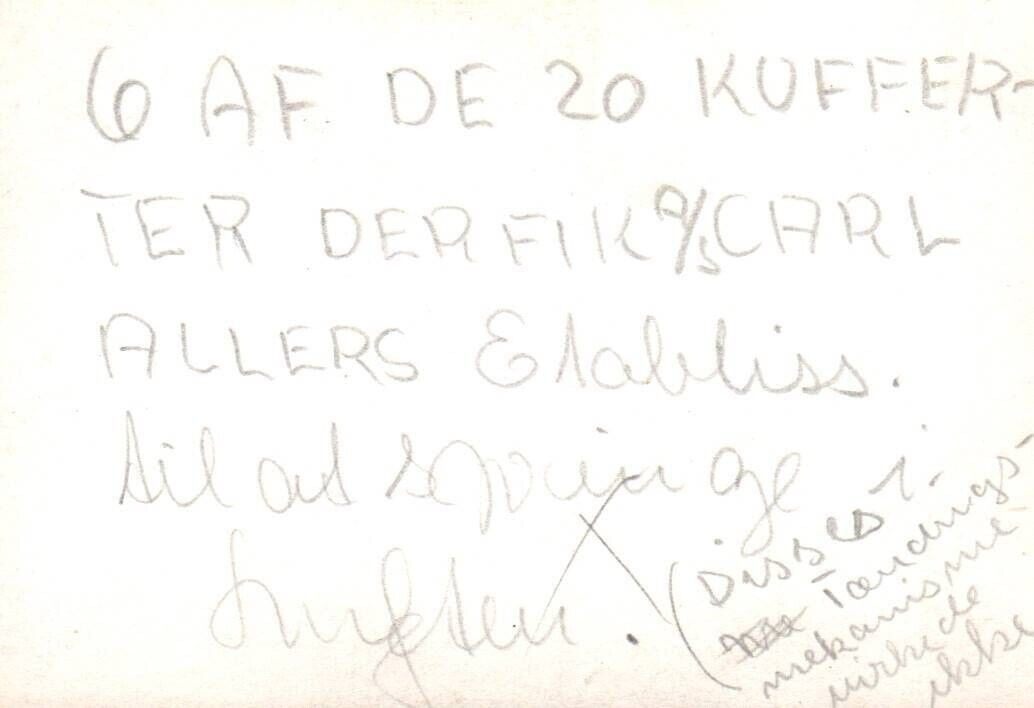 6 AF DE 20 KUFFER-
TER DER FIK A/S CARL
ALLERS Etabliss.
til at springe i
luften.
(Disses
Tændings-
mekanisme
virkede
ikke